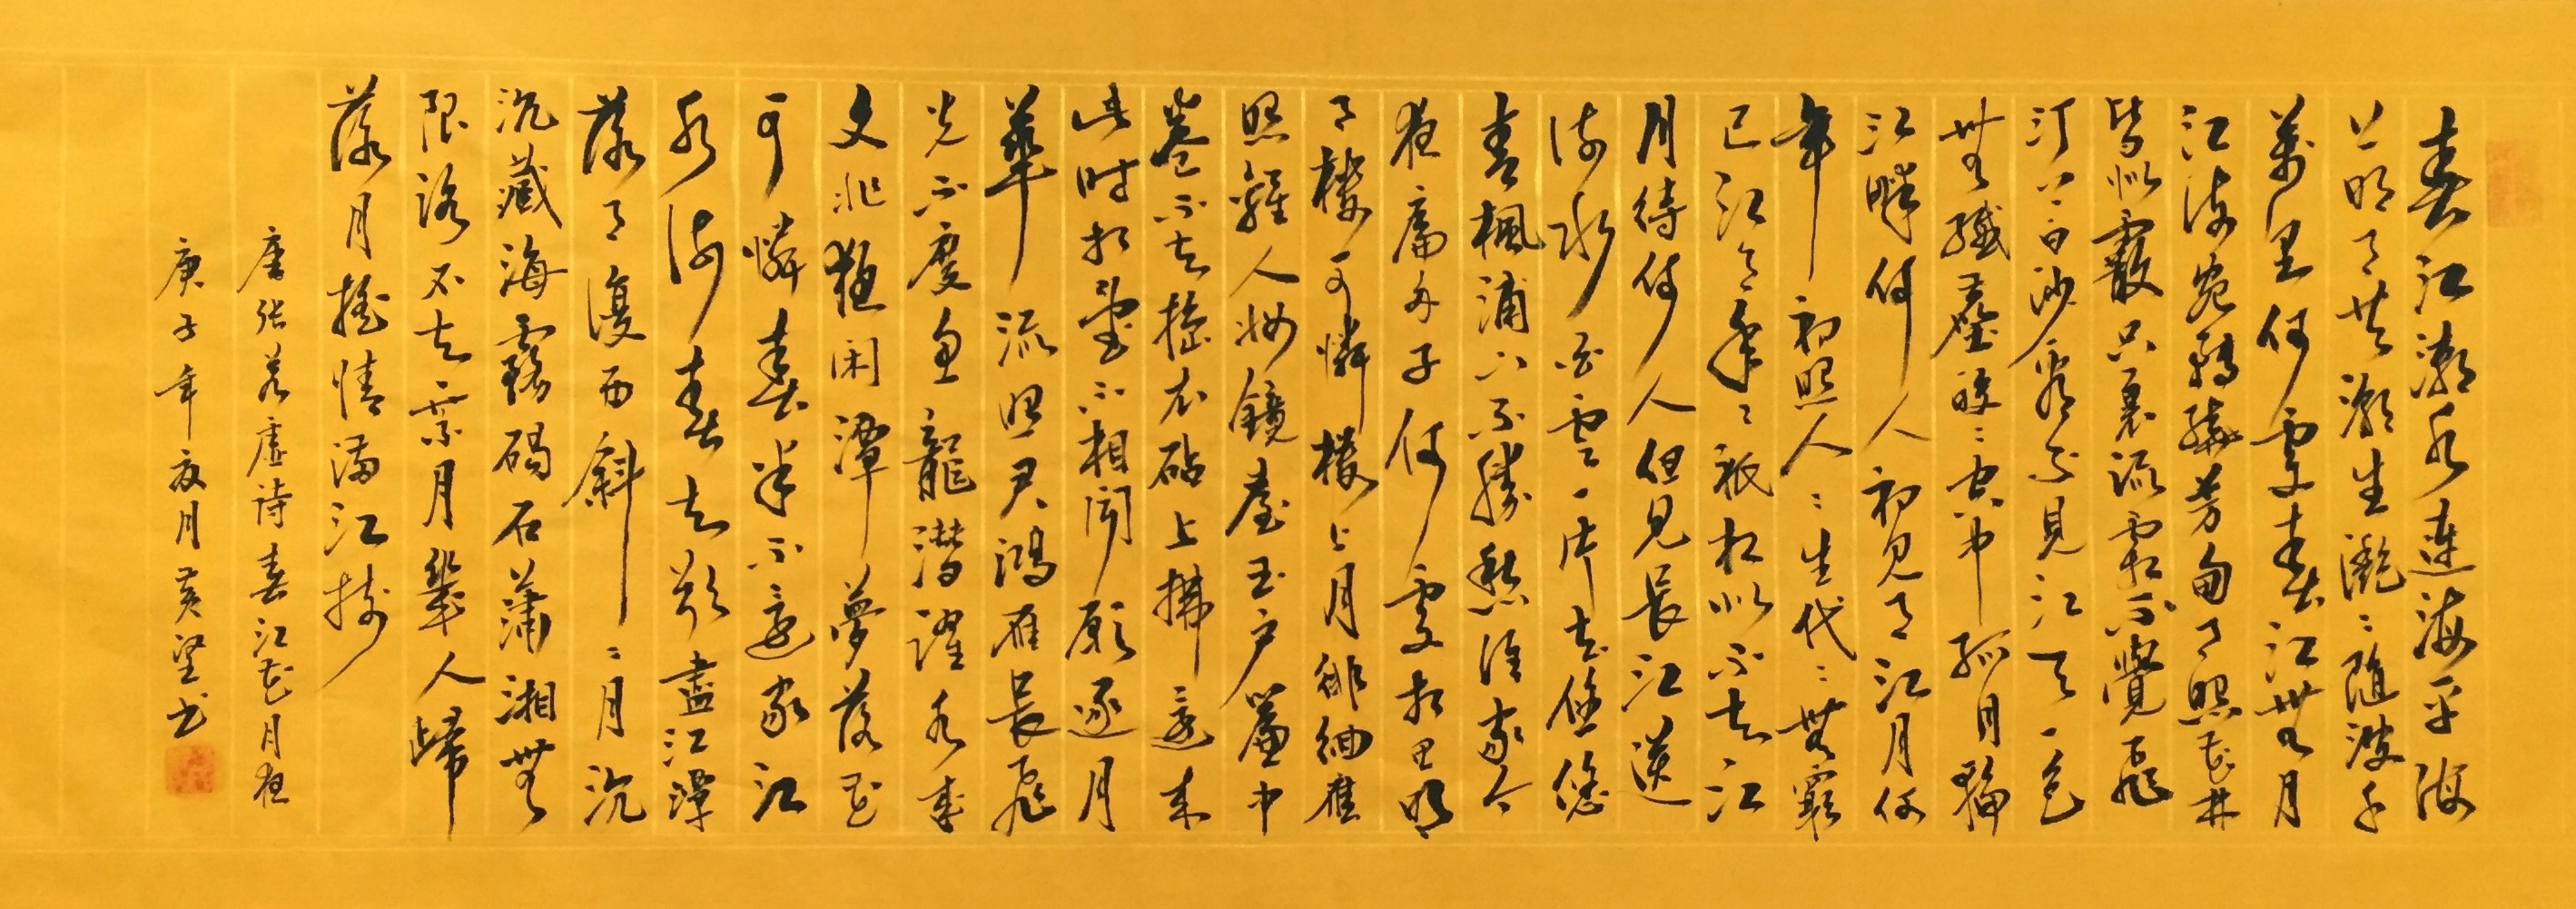 春江潮水連海平海
上明月共潮生灩〻隨波千
萬里何處春江無月
江流宛轉繞芳甸月照花林
皆似霰空裏流霜不覺飛
汀上白沙看不見江天一色
無纖塵皎〻空中孤月輪
江畔何人初見月江月何
年初照人〻生代〻無窮
已江月年〻祇相似不知江
月待何人但見長江送
流水白雲一片去悠悠
青楓浦上不勝愁誰家今
夜扁舟子何處相思明
月樓可憐樓上月徘徊應
照離人妝鏡臺玉戶簾中
卷不去擣衣砧上拂還來
此時相望不相聞願逐月
華流照君鴻雁長飛
光不度魚龍潛躍水成
文昨夜閑潭夢落花
可憐春半不還家江
水流春去欲盡江潭
落月復西斜〻月沉
沉藏海霧碣石瀟湘無
限路不知乘月幾人歸
落月搖情滿江樹
唐張若虛詩春江花月夜
庚子年夏月黃望书